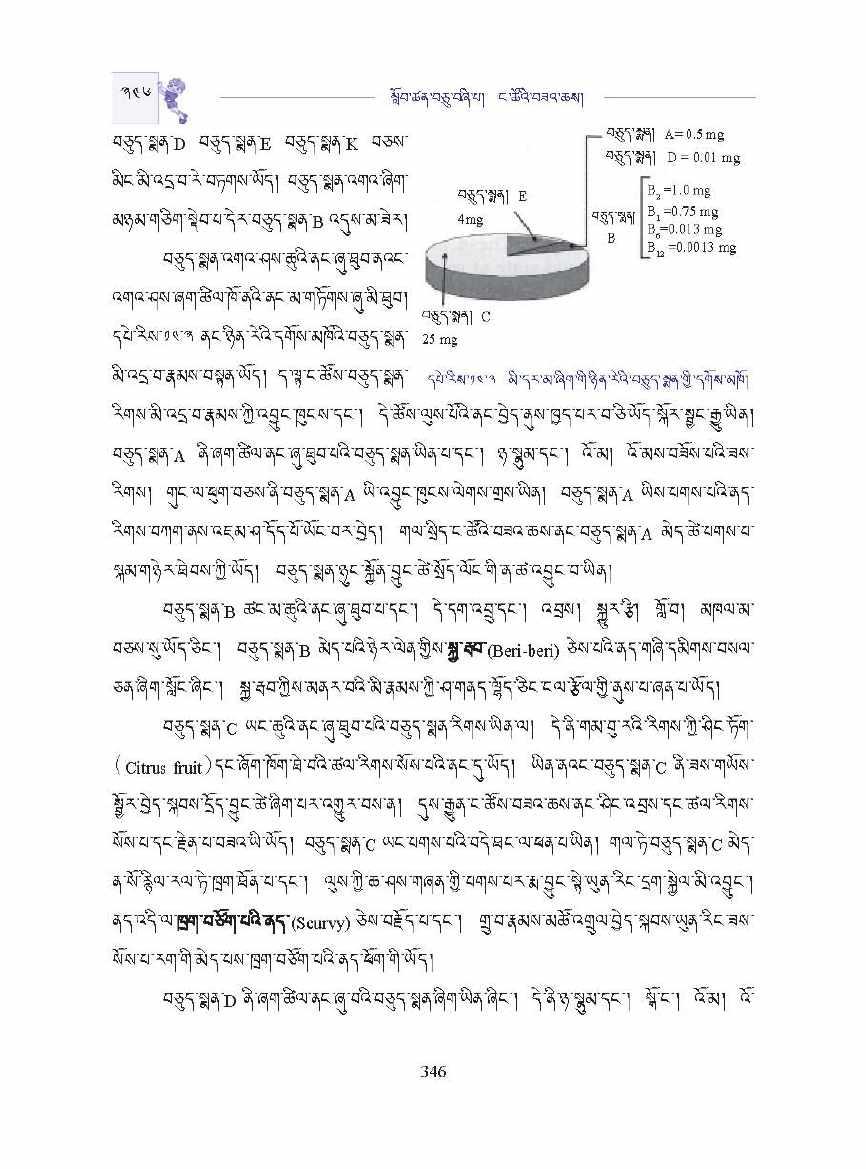 ༣༤༦
སློབ་ཚན་བཅུ་བཞི་པ། ང་ཚོའི་བཟའ་ཆས།
བཅུད་སྨན་D བཅུད་སྨན་E བཅུད་སྨན་K བཅས་
མིང་མི་འདྲ་བ་རེ་བཏགས་ཡོད། བཅུད་སྨན་འགའ་ཞིག་
མཉམ་གཅིག་སྡེབ་པ་དེར་བཅུད་སྨན་B འདུས་མ་ཟེར།
བཅུད་སྨན་འགའ་ཤས་ཆུའི་ནང་ཞུ་ཐུབ་ནའང་
འགའ་ཤས་ཞག་ཚིལ་ཁོ་ནའི་ནང་མ་གཏོགས་ཞུ་མི་ཐུབ།
དཔེ་རིས་༡༤་༣ ནང་ཉིན་རེའི་དགོས་མཁོའི་བཅུད་སྨན་
མི་འདྲ་བ་རྣམས་བསྟན་ཡོད། ད་ལྟ་ང་ཚོས་བཅུད་སྨན་
བཅུད་སྨན། A= 0.5 mg
བཅུད་སྨན། D = 0.01 mg
བཅུད་སྨན། B
B₂ =1.0 mg
B₁ =0.75 mg
B₆=0.013 mg
B₁₂ =0.0013 mg
བཅུད་སྨན། E
4mg
བཅུད་སྨན། C
25 mg
དཔེ་རིས་༡༤་༣ མི་དར་མ་ཞིག་གི་ཉིན་རེའི་བཅུད་སྨན་གྱི་དགོས་མཁོ།
རིགས་མི་འདྲ་བ་རྣམས་ཀྱི་འབྱུང་ཁུངས་དང་། དེ་ཚོས་ལུས་པོའི་ནང་བྱེད་ནུས་ཁྱད་པར་བ་ཅི་ཡོད་སྐོར་སྦྱང་རྒྱུ་ཡིན།
བཅུད་སྨན་A ནི་ཞག་ཚིལ་ནང་ཞུ་ཐུབ་པའི་བཅུད་སྨན་ཡིན་པ་དང་། ཉ་སྣུམ་དང་། འོ་མ། འོ་མས་བཟོས་པའི་ཟས་
རིགས། གུང་ལ་ཕུག་བཅས་ནི་བཅུད་སྨན་A ཡི་འབྱུང་ཁུངས་ལེགས་གྲས་ཡིན། བཅུད་སྨན་A ཡིས་པགས་པའི་ནད་
རིགས་བཀག་ནས་འཇམ་ཤ་དོད་པོ་ཡོང་བར་བྱེད། གལ་སྲིད་ང་ཚོའི་བཟའ་ཆས་ནང་བཅུད་སྨན་A མེད་ཚེ་པགས་པ་
སྐམ་གཉེར་ཐེབས་ཀྱི་ཡོད། བཅུད་སྨན་ཉུང་སྐྱོན་བྱུང་ཚེ་སྲོད་ལོང་གི་ན་ཚ་འབྱུང་བ་ཡིན།
བཅུད་སྨན་B ཚང་མ་ཆུའི་ནང་ཞུ་ཐུབ་པ་དང་། དེ་དག་འབྲུ་དང་། འབྲས། སྐྱུར་རྩི། གློ་བ། མཁལ་མ་
བཅས་སུ་ཡོད་ཅིང་། བཅུད་སྨན་B མེད་པའི་ཉེར་ལེན་གྱིས་སྐྱ་རྦབ་(Beri-beri) ཅེས་པའི་ནད་གཞི་དམིགས་བསལ་
ཅན་ཞིག་སློང་ཞིང་། སྐྱ་རྦབ་ཀྱིས་མནར་བའི་མི་རྣམས་ཀྱི་ཤ་གནད་ལྷོད་ཅིང་ངལ་རྩོལ་གྱི་ནུས་པ་ཞན་པ་ཡོད།
བཅུད་སྨན་C ཡང་ཆུའི་ནང་ཞུ་ཐུབ་པའི་བཅུད་སྨན་རིགས་ཡིན་ལ། དེ་ནི་གམ་བུ་རའི་རིགས་ཀྱི་ཤིང་ཏོག་
（Citrus fruit）དང་ཞོག་ཁོག་ཐེ་བའི་ཚལ་རིགས་སོས་པའི་ནང་དུ་ཡོད། ཡིན་ནའང་བཅུད་སྨན་C ནི་ཟས་གཡོས་
སྦྱོར་བྱེད་སྐབས་དྲོད་བྱུང་ཚེ་ཞིག་པར་འགྱུར་བས་ན། དུས་རྒྱུན་ང་ཚོས་བཟའ་ཆས་ནང་ཤིང་འབྲས་དང་ཚལ་རིགས་
སོས་པ་དང་རྗེན་པ་བཟའ་ཡི་ཡོད། བཅུད་སྨན་C ཡང་པགས་པའི་བདེ་ཐང་ལ་ཕན་པ་ཡིན། གལ་ཏེ་བཅུད་སྨན་C མེད་
ན་སོ་རྙིལ་རལ་ཏེ་ཁྲག་ཐོན་པ་དང་། ལུས་ཀྱི་ཆ་ཤས་གཞན་གྱི་པགས་པར་རྨ་བྱུང་སྟེ་ཡུན་རིང་དྲག་སྐྱེལ་མི་འབྱུང་།
ནད་འདི་ལ་ཁྲག་བཙོག་པའི་ནད་(Scurvy) ཅེས་བརྗོད་པ་དང་། གྲུ་བ་རྣམས་མཚོ་འགྲུལ་བྱེད་སྐབས་ཡུན་རིང་ཟས་
སོས་པ་རག་གི་མེད་པས་ཁྲག་བཙོག་པའི་ནད་ཕོག་གི་ཡོད།
བཅུད་སྨན་D ནི་ཞག་ཚིལ་ནང་ཞུ་བའི་བཅུད་སྨན་ཞིག་ཡིན་ཞིང་། དེ་ནི་ཉ་སྣུམ་དང་། སྒོ་ང་། འོ་མ། འོ་
346